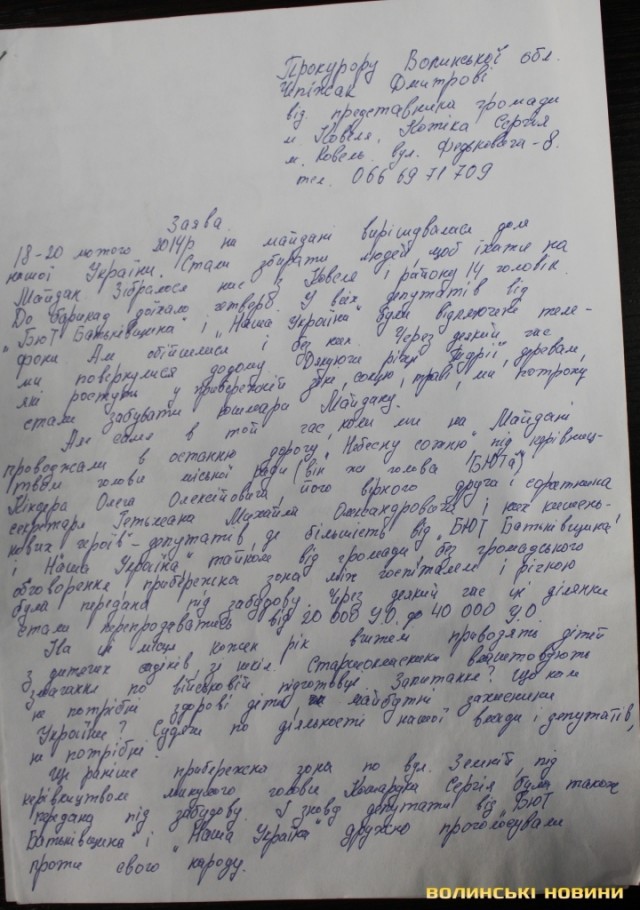 Прокурору Волинської обл.
Дмитрові
від представника громади
м. Ковеля. Котіка Сергія
м. Ковель. вул. Федьковича-8.
тел. 066 69 71 709
Заява.
18-20 лютого 2014р на майдані вирішувалися доля
нашої України. Стали збирати людей, щоб їхати на
Майдан Зібралося нас з Ковеля і району 14 чоловік.
До барикад доїхало четверо. У всіх депутатів від
„БЮТ Батьківщина" і „Наша Україна" були відключені теле-
фони. Ми обійшлися і без них. Через деякий час
ми повернулися додому. Дякуючи річці деревам,
які ростуть у прибережній зоні, сонцю, траві, ми потроху
стали забувати кошмари Майдану.
Ал саме в той час, коли ми на Майдані
проводжали в останню дорогу „Небесну сотню" під керівниц-
твом голови міської ради (він же голова БЮТа)
Кіндера Олега Олексійовича, його вірного друга і соратника
секретаря Гетьмана Михайла Олександровича і них кишень-
кових героїв-депутатів, де більшість від „БЮТ Батьківщина"
і „Наша Україна" тайком від громади, без громадського
обговорення прибережна зона між госпіталем і річкою
була передана під забудову. Через деякий час ці ділянки
стали перепродаватись від 20 000 У.О. до 40 000 У.О
На це місце кожен рік вчителі приводять дітей
з дитячих садіків, зі шкіл. Старшокласники влаштовують
змагання по військовій підготовці. Запитання? Що нам
не потрібні здорові діти, майбутні захисники
України? Судячи по діяльності нашої влади і депутатів,
не потрібні.
Ще раніше прибережна зона по вул. Земній, під
керівництвом минулого голови Сергія була також
передана під забудову. І знову депутати від „БЮТ
Батьківщина" і „Наша Україна" дружно проголосували
проти свого народу.
ВОЛИНСЬКІ НОВИНИ